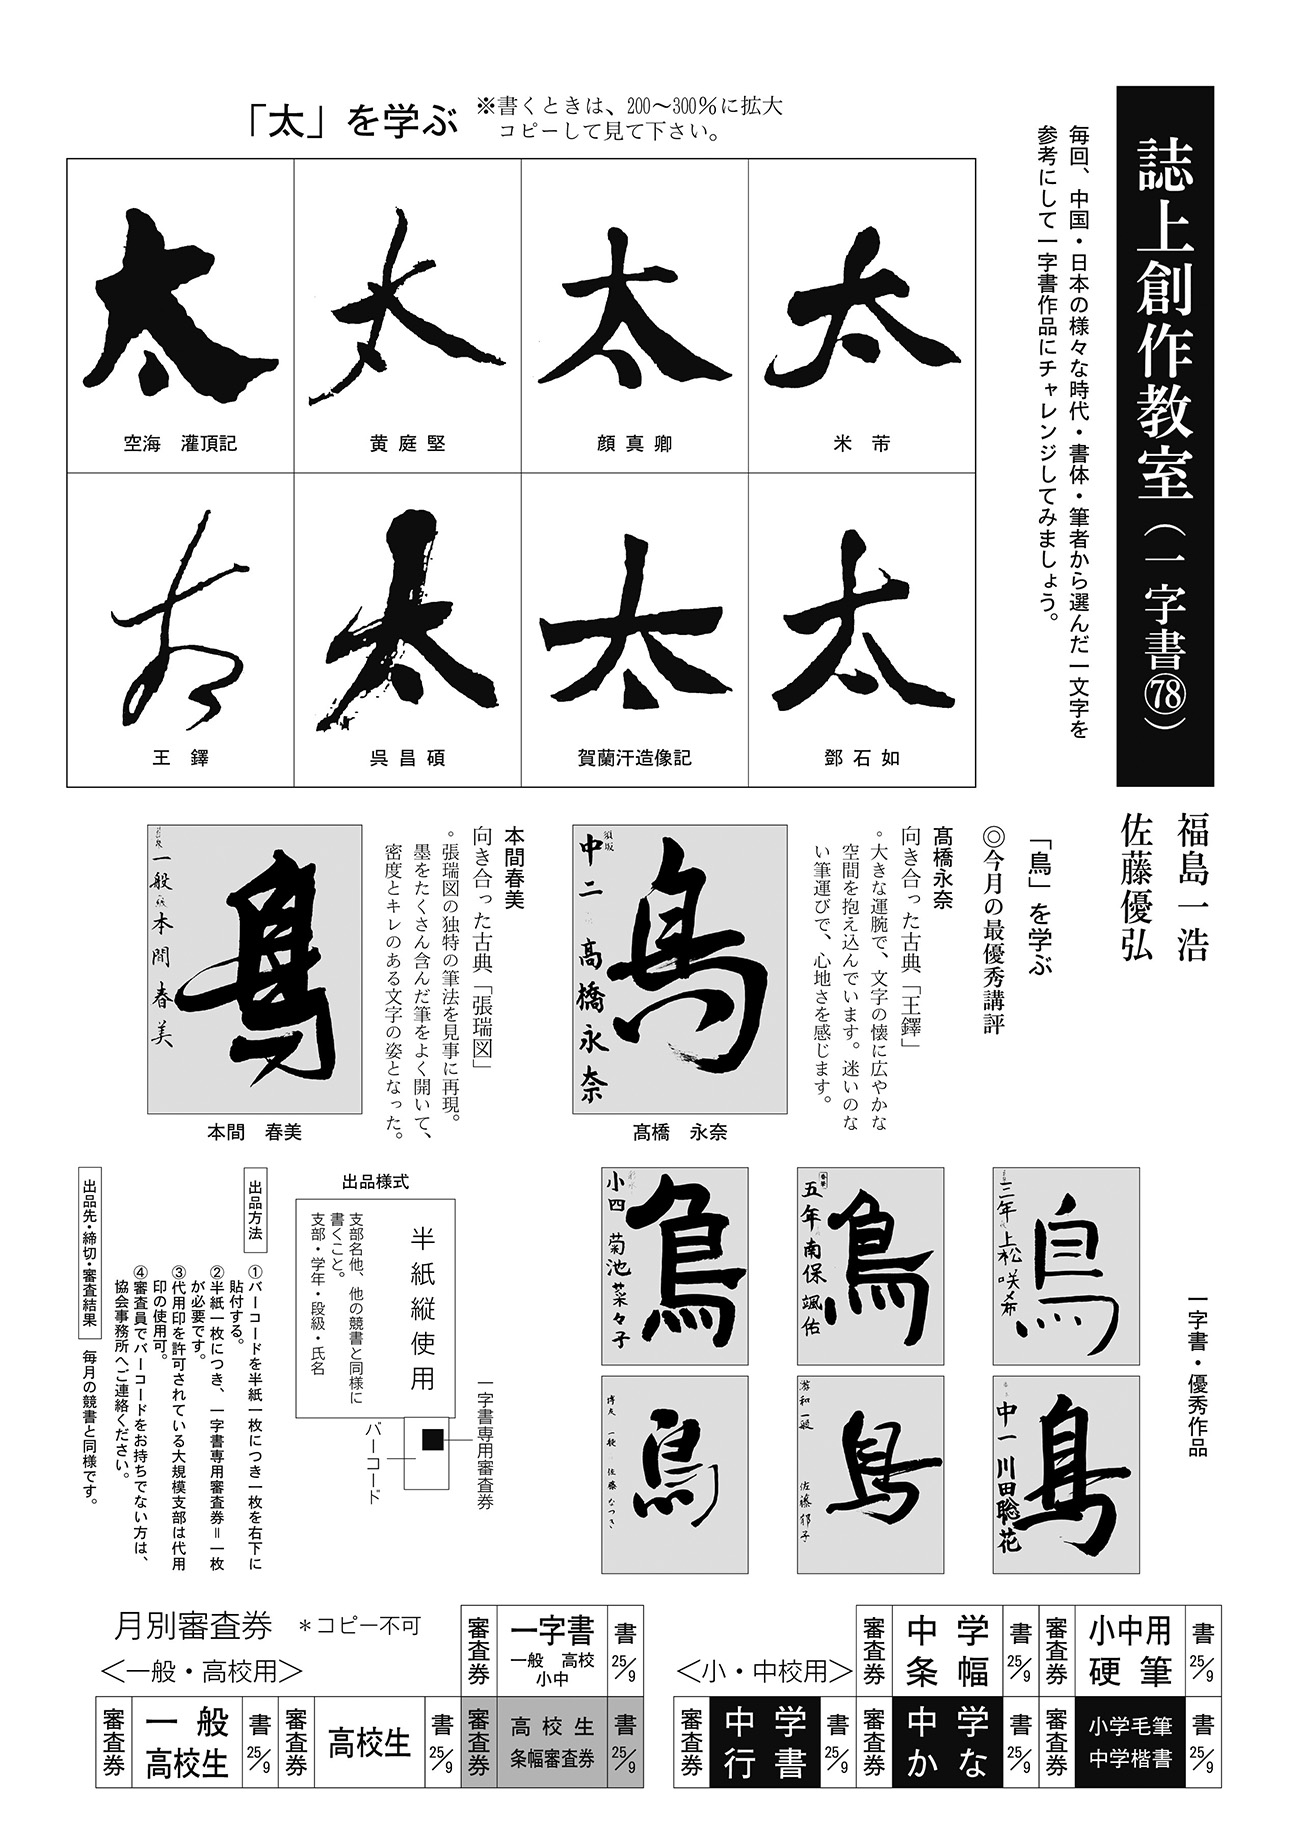 誌上創作教室（一字書㊆㊇）
福島一浩
佐藤優弘
毎回、中国・日本の様々な時代・書体・筆者から選んだ一文字を
参考にして一字書作品にチャレンジしてみましょう。
「太」を学ぶ
※書くときは、200〜300％に拡大
コピーして見て下さい。
太
米　芾
太
顔真卿
太
黄庭堅
太
空海　灌頂記
太
鄧石如
太
賀蘭汗造像記
太
呉昌碩
太
王　鐸
「鳥」を学ぶ
◎今月の最優秀講評
髙橋永奈
向き合った古典「王鐸」
。大きな運腕で、文字の懐に広やかな
空間を抱え込んでいます。迷いのな
い筆運びで、心地さを感じます。
鳥
須坂
中二
高橋永奈
髙橋　永奈
本間春美
向き合った古典「張瑞図」
。張瑞図の独特の筆法を見事に再現。
墨をたくさん含んだ筆をよく開いて、
密度とキレのある文字の姿となった。
鳥
一般
本間春美
本間　春美
一字書・優秀作品
鳥
三年 上松咲希
鳥
五年 南保颯佑
鳥
小四 菊池菜々子
鳥
中一 川田聡花
鳥
一般
佐藤郁子
鳥
博友 一般 佐藤なつき
出品様式
半紙縦使用
支部名他、他の競書と同様に
書くこと。
支部・学年・段級・氏名
一字書専用審査券
バーコード
出品方法
①バーコードを半紙一枚につき一枚を右下に
貼付する。
②半紙一枚につき、一字書専用審査券＝一枚
が必要です。
③代用印を許可されている大規模支部は代用
印の使用可。
④審査員でバーコードをお持ちでない方は、
協会事務所へご連絡ください。
出品先・締切・審査結果　毎月の競書と同様です。
月別審査券　＊コピー不可
＜一般・高校用＞
審査券 一字書 一般 高校 小中 書 25/9
審査券 一般 高校生 書 25/9
審査券 高校生 書 25/9
審査券 高校生 条幅審査券 書 25/9
＜小・中校用＞
審査券 中学 条幅 書 25/9
審査券 小中用 硬筆 書 25/9
審査券 中学 行書 書 25/9
審査券 中学 かな 書 25/9
審査券 小学毛筆 中学楷書 書 25/9